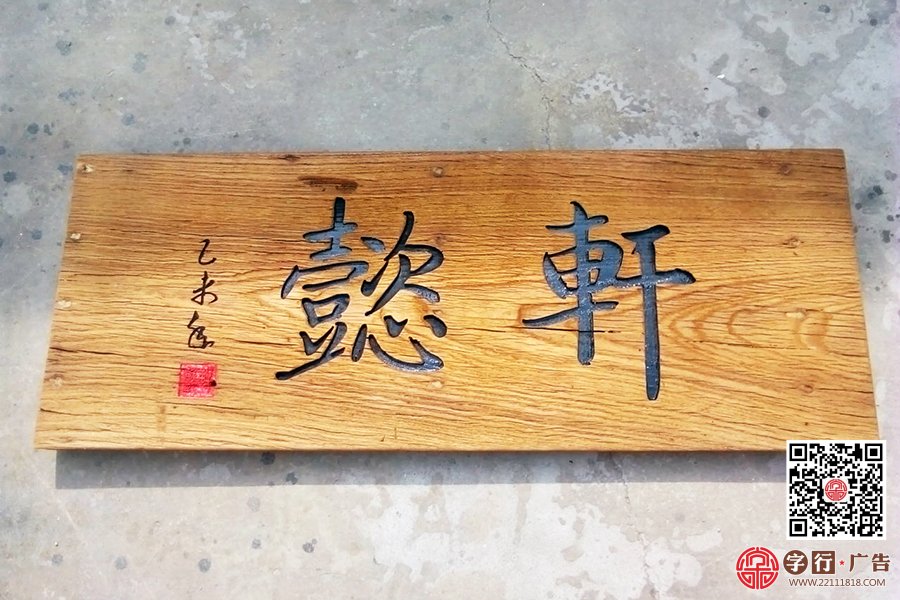 懿軒
乙未年
字行·广告
WWW.22111818.COM